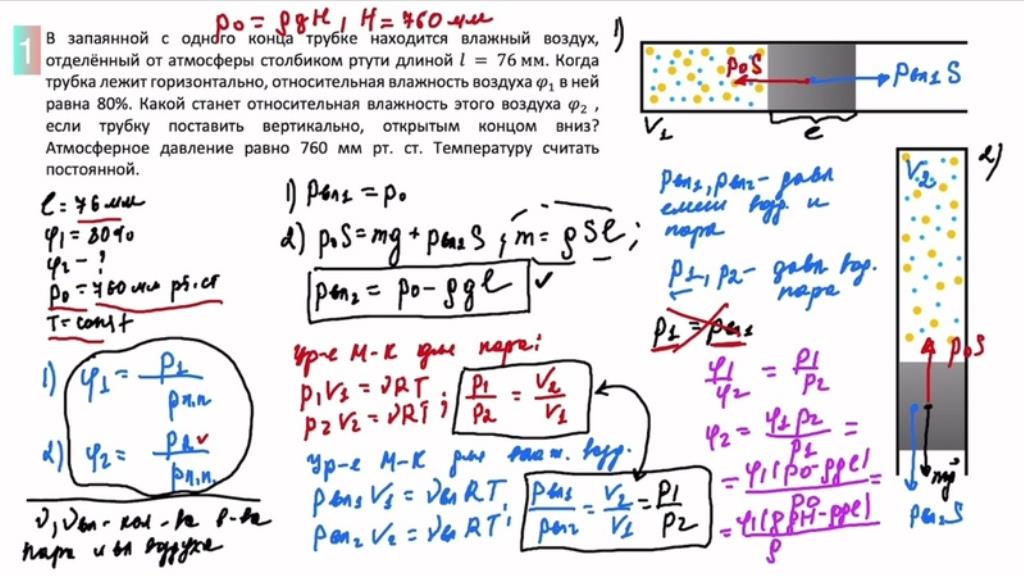 p₀ = ρgH, H = 760 мм
1
В запаянной с одного конца трубке находится влажный воздух,
отделённый от атмосферы столбиком ртути длиной l = 76 мм. Когда
трубка лежит горизонтально, относительная влажность воздуха φ₁ в ней
равна 80%. Какой станет относительная влажность этого воздуха φ₂ ,
если трубку поставить вертикально, открытым концом вниз?
Атмосферное давление равно 760 мм рт. ст. Температуру считать
постоянной.
l = 76 мм
φ₁ = 80%
φ₂ - ?
p₀ = 760 мм рт. ст
T = const
1) φ₁ = p₁ / pн.п.
2) φ₂ = p₂ / pн.п.
ν, νвл - кол-ва в-ва
пара и вл воздуха
1) pвл₁ = p₀
2) p₀S = mg + pвл₂S, m = ρSl;
pвл₂ = p₀ - ρgl
Ур-е М-К для пара:
p₁V₁ = νRT
p₂V₂ = νRT; p₁/p₂ = V₂/V₁
Ур-е М-К для влаж. возд.
pвл₁V₁ = νвлRT
pвл₂V₂ = νвлRT; pвл₁/pвл₂ = V₂/V₁ = p₁/p₂
1)
p₀S
pвл₁S
V₁
l
pвл₁, pвл₂ - давл
смеси возд. и
пара
p₁, p₂ - давл вод.
пара
p₁ = pвл₁
φ₁/φ₂ = p₁/p₂
φ₂ = φ₁p₂/p₁ =
= φ₁(p₀-ρgl)/p₀ =
= φ₁(ρgH-ρgl)/ρ
2)
V₂
p₀S
mg
pвл₂S